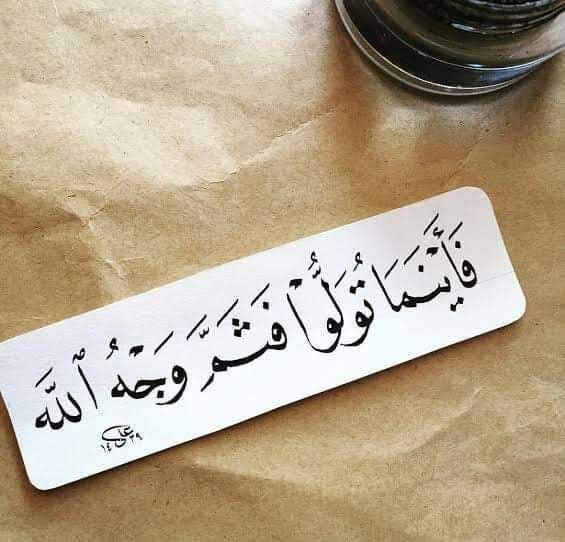 فَأَيْنَمَا تُوَلُّوا۟ فَثَمَّ وَجْهُ ٱللَّه
علي
١٤٣٩